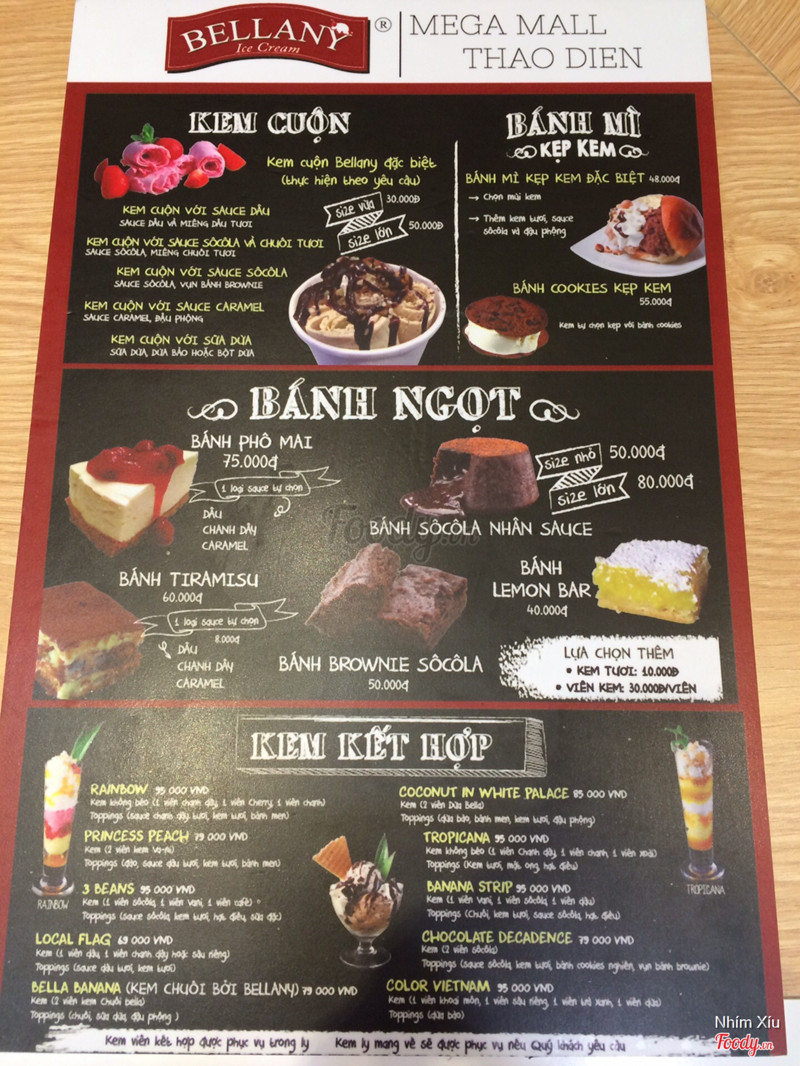 BELLANY ®
Ice Cream
MEGA MALL
THAO DIEN
KEM CUỘN
Kem cuộn Bellany đặc biệt
(thực hiện theo yêu cầu)
size vừa 30.000Đ
size lớn 50.000Đ
KEM CUỘN VỚI SAUCE DÂU
SAUCE DÂU VÀ MIẾNG DÂU TƯƠI
KEM CUỘN VỚI SAUCE SÔCÔLA VÀ CHUỐI TƯƠI
SAUCE SÔCÔLA, MIẾNG CHUỐI TƯƠI
KEM CUỘN VỚI SAUCE SÔCÔLA
SAUCE SÔCÔLA, VỤN BÁNH BROWNIE
KEM CUỘN VỚI SAUCE CARAMEL
SAUCE CARAMEL, ĐẬU PHỘNG
KEM CUỘN VỚI SỮA DỪA
SỮA DỪA, DỪA BÀO HOẶC BỘT DỪA
BÁNH MÌ
KẸP KEM
BÁNH MÌ KẸP KEM ĐẶC BIỆT 48.000đ
→ Chọn mùi kem
→ Thêm kem tươi, sauce
sôcôla và đậu phộng
BÁNH COOKIES KẸP KEM
55.000đ
Kem tự chọn kẹp với bánh cookies
BÁNH NGỌT
BÁNH PHÔ MAI
75.000đ
1 loại sauce tự chọn
DÂU
CHANH DÂY
CARAMEL
size nhỏ 50.000đ
size lớn 80.000đ
BÁNH SÔCÔLA NHÂN SAUCE
BÁNH TIRAMISU
60.000đ
1 loại sauce tự chọn
8.000đ
DÂU
CHANH DÂY
CARAMEL
BÁNH BROWNIE SÔCÔLA
50.000đ
BÁNH
LEMON BAR
40.000đ
LỰA CHỌN THÊM
• KEM TƯƠI: 10.000Đ
• VIÊN KEM: 30.000Đ/VIÊN
KEM KẾT HỢP
RAINBOW 95 000 VND
Kem không béo (1 viên chanh dây, 1 viên Cherry, 1 viên chanh)
Toppings (sauce chanh dây tươi, kem tươi, bánh men)
PRINCESS PEACH 79 000 VND
Kem (2 viên kem Va-ni)
Toppings (đào, sauce dâu tươi, kem tươi, bánh men)
3 BEANS 95 000 VND
Kem (1 viên sôcôla, 1 viên vani, 1 viên café)
Toppings (sauce sôcôla, kem tươi, hạt điều, sữa đặc)
LOCAL FLAG 69 000 VND
Kem (1 viên dâu, 1 viên chanh dây hoặc sầu riêng)
Toppings (sauce dâu tươi, kem tươi)
BELLA BANANA (KEM CHUỐI BỞI BELLANY) 79 000 VND
Kem (2 viên kem Chuối bella)
Toppings (chuối, sữa dừa, đậu phộng )
RAINBOW
COCONUT IN WHITE PALACE 85 000 VND
Kem (2 viên Dừa Bella)
Toppings (dừa bào, bánh men, kem tươi, đậu phộng)
TROPICANA 95 000 VND
Kem không béo (1 viên Chanh dây, 1 viên chanh, 1 viên xoài)
Toppings (Kem tươi, mật ong, hạt điều)
BANANA STRIP 95 000 VND
Kem (1 viên vani, 1 viên sôcôla, 1 viên dâu)
Toppings (Chuối, kem tươi, sauce sôcôla, hạt điều)
CHOCOLATE DECADENCE 79 000 VND
Kem (2 viên sôcôla)
Toppings (sauce sôcôla, kem tươi, bánh cookies nghiền, vụn bánh brownie)
COLOR VIETNAM 95 000 VND
Kem (1 viên khoai môn, 1 viên sầu riêng, 1 viên trà xanh, 1 viên dừa)
Toppings (dừa bào)
TROPICANA
Kem viên kết hợp được phục vụ trong ly Kem ly mang về sẽ được phục vụ nếu Quý khách yêu cầu
Foody.vn
Nhím Xíu
Foody.vn